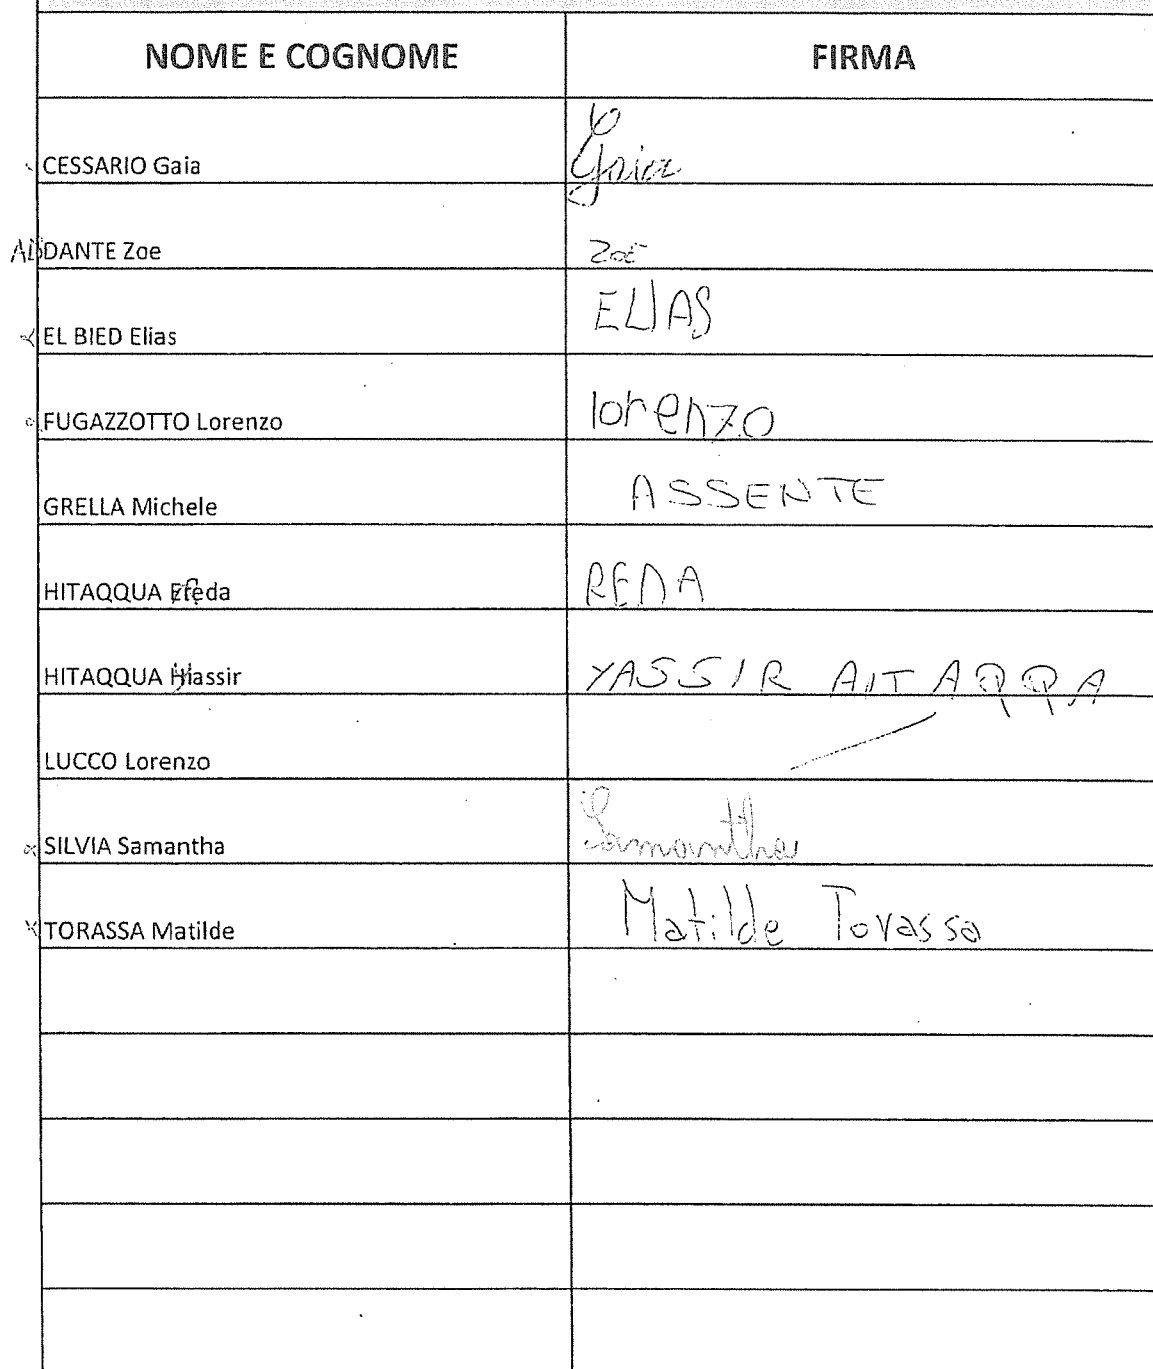 NOME E COGNOME FIRMA
CESSARIO Gaia Gaia
AB DANTE Zoe Zoe
EL BIED Elias ELIAS
FUGAZZOTTO Lorenzo lorenzo
GRELLA Michele ASSENTE
HITAQQUA Reda REDA
HITAQQUA yassir YASSIR AIT AQQA
LUCCO Lorenzo
SILVIA Samantha Samantha
TORASSA Matilde Matilde Torassa